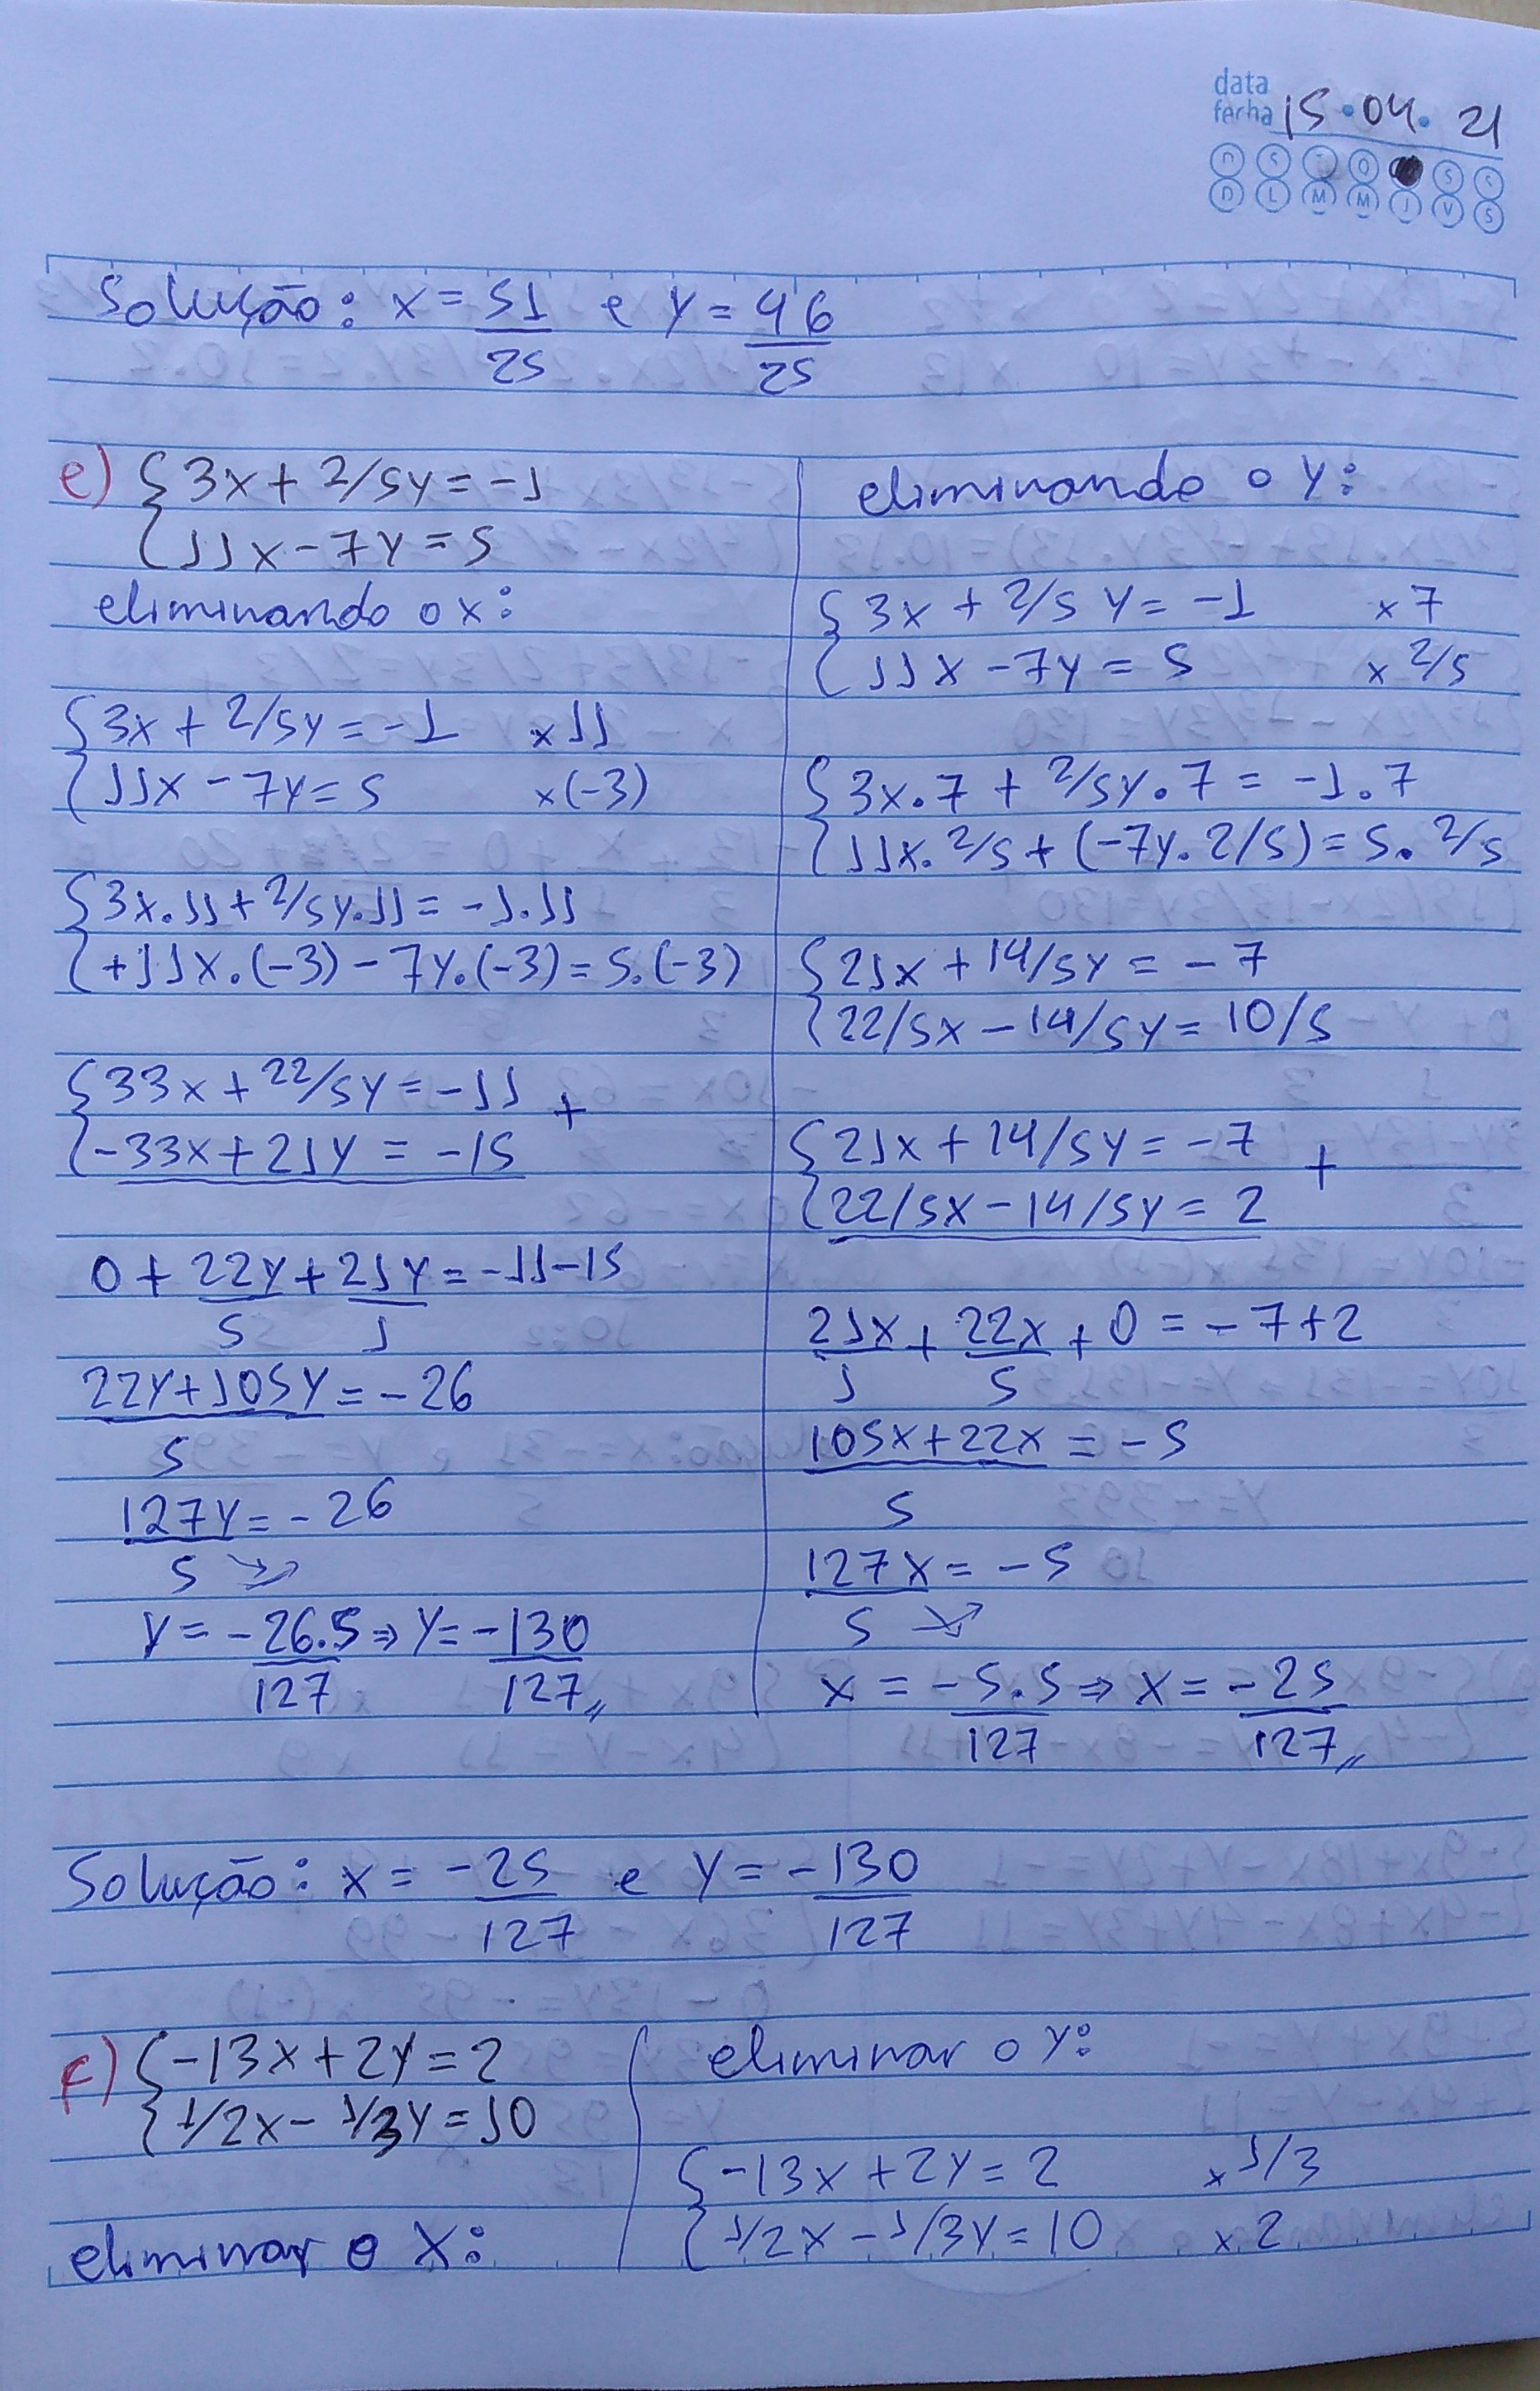 data
fecha 15.04.21
D S T Q S S
D L M M J V S
Solução: x = 51/25 e y = 46/25
e) { 3x + 2/5y = -1
{ 11x - 7y = 5
eliminando o x:
{ 3x + 2/5y = -1 x 11
{ 11x - 7y = 5 x (-3)
{ 3x.11 + 2/5y.11 = -1.11
{ +11x.(-3) - 7y.(-3) = 5.(-3)
{ 33x + 22/5y = -11 +
{ -33x + 21y = -15
0 + 22y/5 + 21y/1 = -11-15
22y+105y/5 = -26
127y/5 = -26
y = -26.5/127 ⇒ y = -130/127 //
eliminando o y:
{ 3x + 2/5 y = -1 x 7
{ 11x - 7y = 5 x 2/5
{ 3x.7 + 2/5y.7 = -1.7
{ 11x.2/5 + (-7y.2/5) = 5.2/5
{ 21x + 14/5y = -7
{ 22/5x - 14/5y = 10/5
{ 21x + 14/5y = -7 +
{ 22/5x - 14/5y = 2
21x/1 + 22x/5 + 0 = -7+2
105x+22x/5 = -5
127x/5 = -5
x = -5.5/127 ⇒ x = -25/127 //
Solução: x = -25/127 e y = -130/127
f) { -13x + 2y = 2
{ 1/2x - 1/3y = 10
eliminar o x:
eliminar o y:
{ -13x + 2y = 2 x 1/3
{ 1/2x - 1/3y = 10 x 2